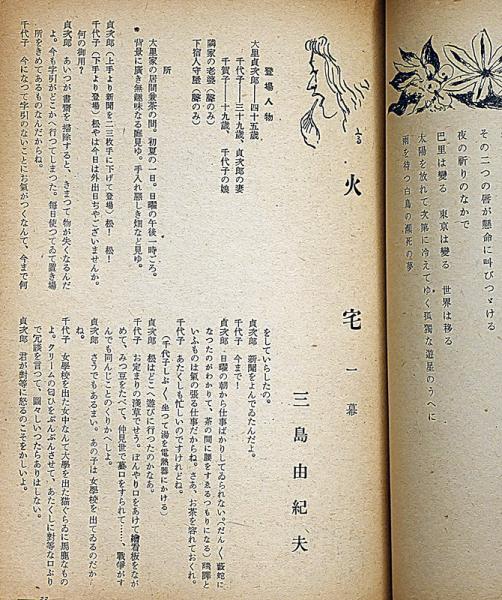 その二つの唇が懸命に叫びつゞける
夜の祈りのなかで
巴里は變る　東京は變る　世界は移る
太陽を放れて次第に冷えてゆく孤獨な遊星のうへに
雨を待つ白鳥の瀕死の夢
火宅　一幕
三島由紀夫
登場人物
大里貞次郎――四十五歳
千代子――三十九歳、貞次郎の妻
千賀子――十九歳、千代子の娘
隣家の老婆（聲のみ）
下宿人守屋（聲のみ）
所
大里家の居間兼茶の間。初夏の一日。日曜の午後一時ごろ。
背景に廣き無趣味なる庭見ゆ。手入れ惡しき畑など見ゆ。
貞次郎（上手より新聞を二三枚手に下げて登場）松！　松！
千代子（下手より登場）松やは今日は外出日ぢやございませんか。
何の御用？
貞次郎　あいつが書齋を掃除すると、きまつて物が失くなるんだ
よ。今も字引がどこかへ行つてしまつた。毎日使つてゐて置き場
所をきめてあるものなんだからね。
千代子　今になつて字引のないことにお氣がつくなんて、今まで何
をしていらしたの。
貞次郎　新聞をよんでゐたんだよ。
千代子　今まで
貞次郎　日曜の朝から仕事ばかりしてゐられないぺだん〱藪蛇に
なつたのがわかりて、茶の間に腰をすゑるつもりになる）飜譯と
いふものは氣の張る仕事だからね。さあ、お茶を容れておくれ。
千代子　あたくしも忙しいのですけれどね。
（千代子しぶ〱、坐つて湯を電熱器にかける）
貞次郎　松はどこへ遊びに行つたのかなあ。
千代子　お定まりの淺草でせう。ぼんやり口をあけて繪看板をなが
めて、みつ豆をたべて、仲見世で蟇口をすられて……、戰爭がす
んでも同んじことのくりかへしよ。
貞次郎　さうでもあるまい。あの子は女學校を出てゐるのだか
ね。
千代子　女學校を出た女中なんて大學を出た猫ぐらゐに馬鹿なもの
よ。クリームの匂ひをぷんぷんさせて、あたくしに對等な口ぶり
で冗談を言つて、圖々しいつたらありはしない。
貞次郎　君が對等に怒るのこそをかしいよ。